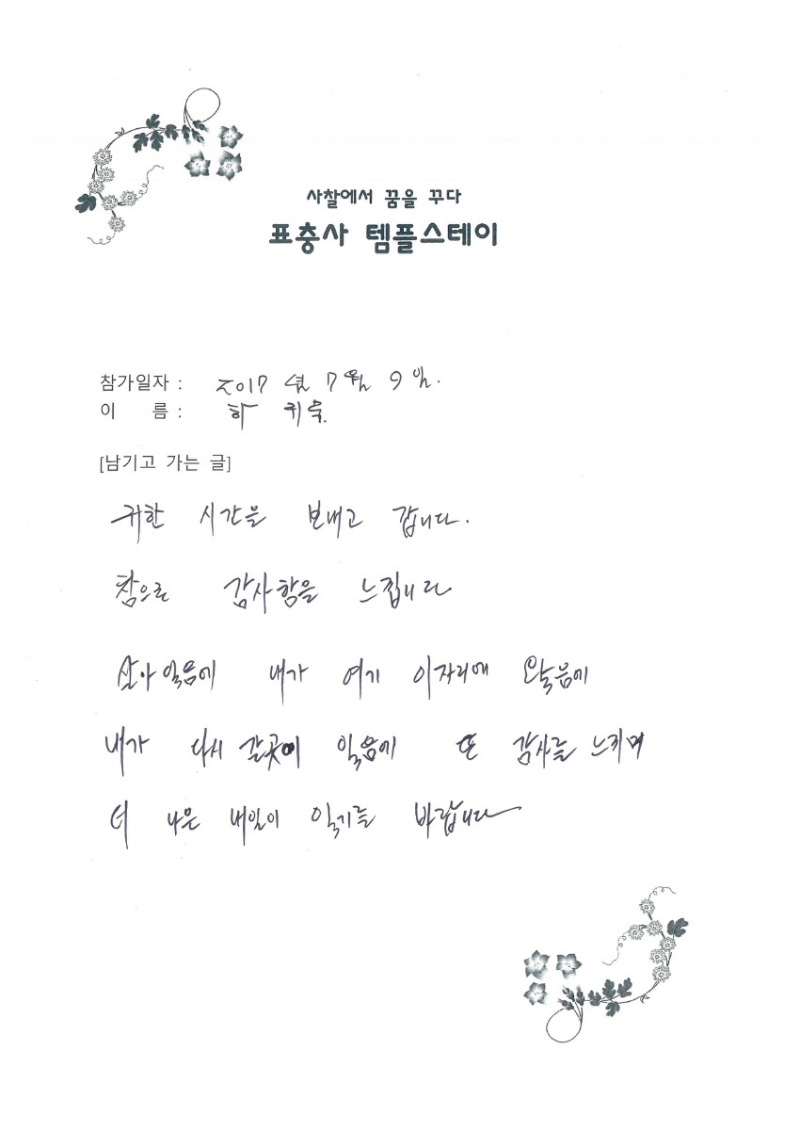 사찰에서 꿈을 꾸다
표충사 템플스테이
참가일자 : 2017년 7월 9일.
이 름 : 하
[남기고 가는 글]
귀한 시간을 보내고 갑니다.
참으로 감사함을 느낍니다
살아있음에 내가 여기 이자리에 왔음에
내가 다시 갈곳이 있음에 또 감사를 느끼며
더 나은 내일이 있기를 바랍니다